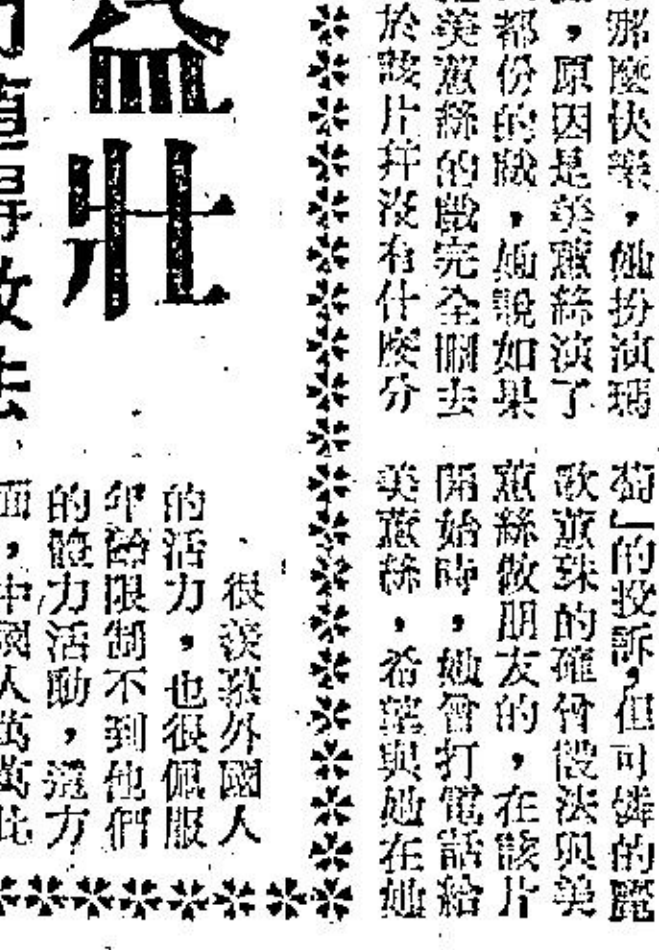 那麼快樂，她扮演瑪
，原因是美蕙絲演了
都份的戲，她說如果
美蕙絲的戲完全刪去
於該片幷沒有什麼分
萄」的投訴，但可憐的麗
歌蕙珠的確曾設法與美
蕙絲做朋友的，在該片
開始時，她曾打電話給
美蕙絲，希望與她在她
益壯
效法
很羨慕外國人
的活力，也很佩服
年齡限制不到他們
的體力活動，這方
面，中國人萬萬比